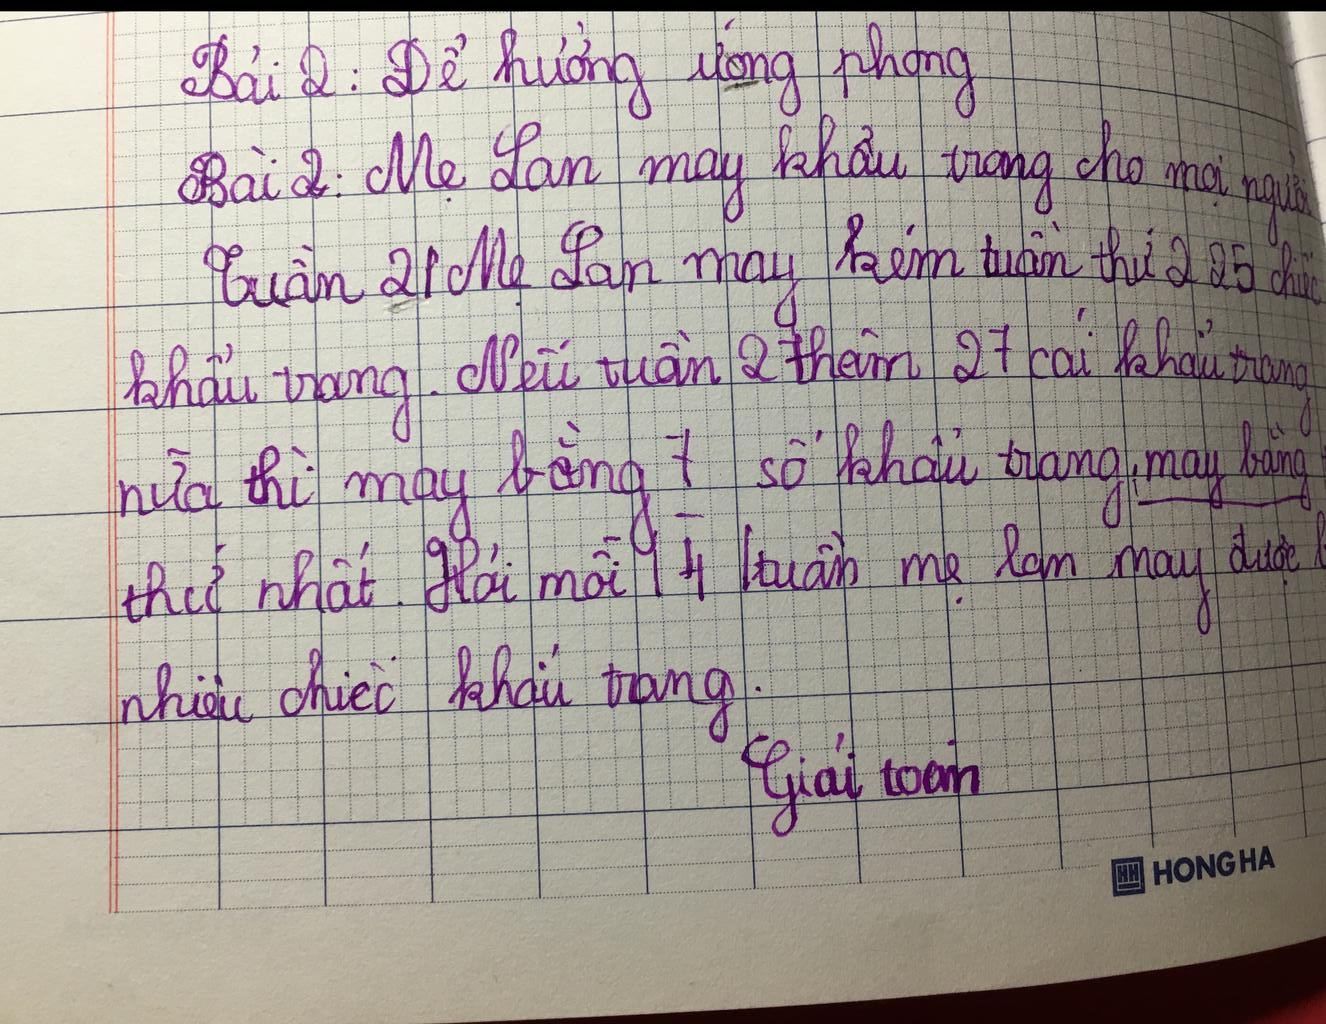 Bài 2: Để hưởng ứng phong
Bài 2: Mẹ Lan may khẩu trang cho mọi người
Tuần 21 Mẹ Lan may kém tuần thứ 2 25 chiếc
khẩu trang. Nếu tuần 2 thêm 27 cái khẩu trang
nữa thì may bằng 7 số khẩu trang, may bằng
thứ nhất. Hỏi mỗi 4 tuần mẹ lan may được
nhiêu chiếc khẩu trang.
Giải toán
HH HONG HA